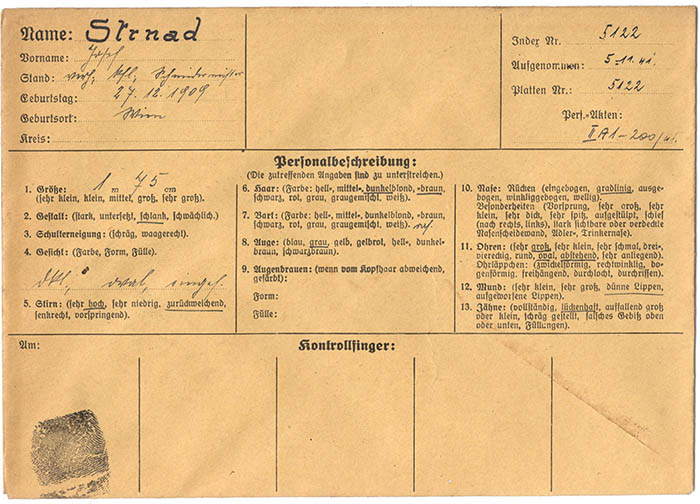 Name: Strnad
Vorname: Josef
Stand: verh., kfl., Schneidermeister
Geburtstag: 27.12.1909
Geburtsort: Wien
Kreis:
Index Nr. 5122
Aufgenommen: 5.11.41.
Platten Nr.: 5122
Pers.-Akten:
II A1-200/41.
Personalbeschreibung:
(Die zutreffenden Angaben sind zu unterstreichen.)
1. Größe: 1 m 75 cm
(sehr klein, klein, mittel, groß, sehr groß).
2. Gestalt: (stark, untersetzt, schlank, schwächlich.)
3. Schulterneigung: (schräg, waagerecht.)
4. Gesicht: (Farbe, Form, Fülle).
dkl., oval, eingef.
5. Stirn: (sehr hoch, sehr niedrig, zurückweichend,
senkrecht, vorspringend).
6. Haar: (Farbe: hell-, mittel-, dunkelblond, -braun,
schwarz, rot, grau, graugemischt, weiß).
7. Bart: (Farbe: hell-, mittel-, dunkelblond, -braun,
schwarz, rot, grau, graugemischt, weiß). ras.
8. Auge: (blau, grau, gelb, gelbrot, hell-, dunkel-
braun, schwarzbraun).
9. Augenbrauen: (wenn vom Kopfhaar abweichend,
gefärbt):
Form:
Fülle:
10. Nase: Rücken (eingebogen, gradlinig, ausge-
bogen, winkliggebogen, wellig).
Besonderheiten (Vorsprung, sehr groß, sehr
klein, sehr dick, sehr spitz, aufgestülpt, schief
(nach rechts, links), stark sichtbare oder verdeckte
Nasenscheidewand, Adler-, Trinkernase).
11. Ohren: (sehr groß, sehr klein, sehr schmal, drei-,
viereckig, rund, oval, abstehend, sehr anliegend).
Ohrläppchen: (zwickelförmig, rechtwinklig, bo-
genförmig, freihängend, durchlocht, durchrissen).
12. Mund: (sehr klein, sehr groß, dünne Lippen,
aufgeworfene Lippen).
13. Zähne: (vollständig, lückenhaft, auffallend groß
oder klein, schräg gestellt, falsches Gebiß oben
oder unten, Füllungen).
Am:
Kontrollfinger: